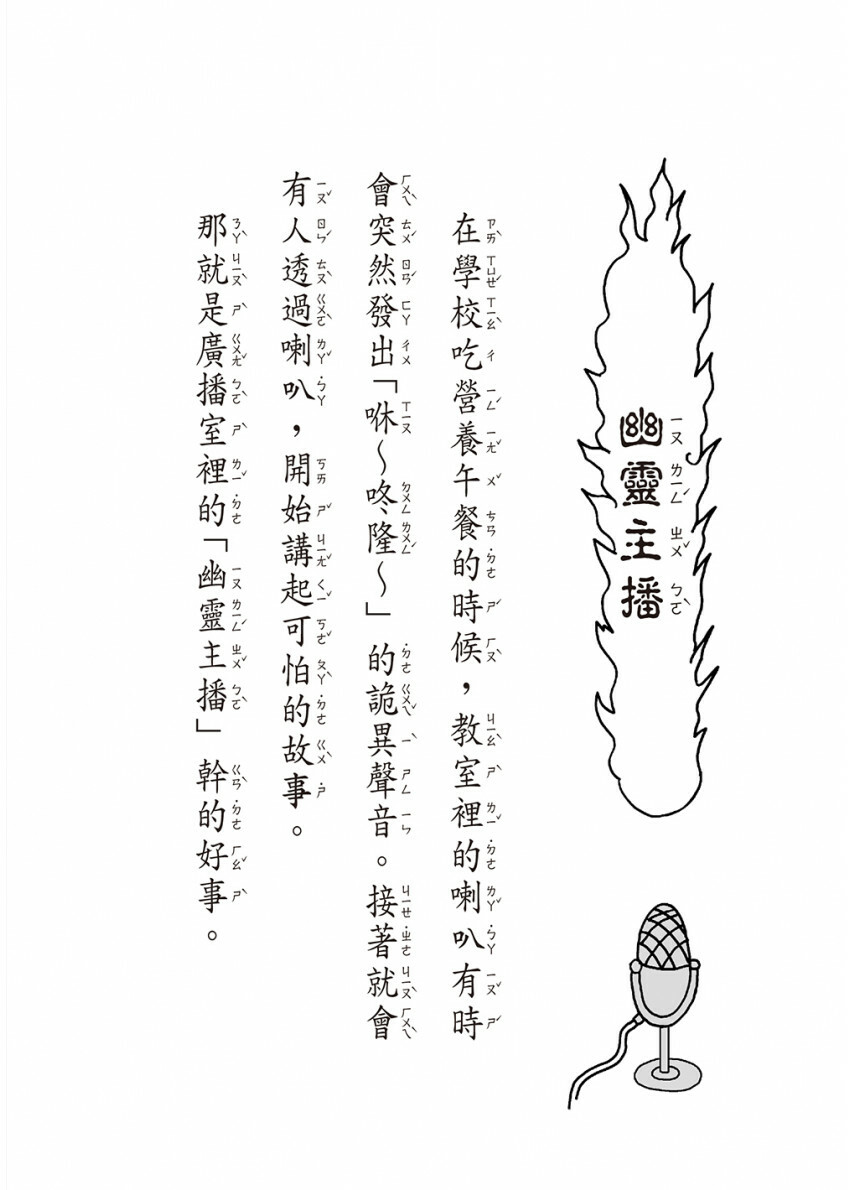 幽靈主播
在學校吃營養午餐的時候，教室裡的喇叭有時
會突然發出「咻～咚隆～」的詭異聲音。接著就會
有人透過喇叭，開始講起可怕的故事。
那就是廣播室裡的「幽靈主播」幹的好事。